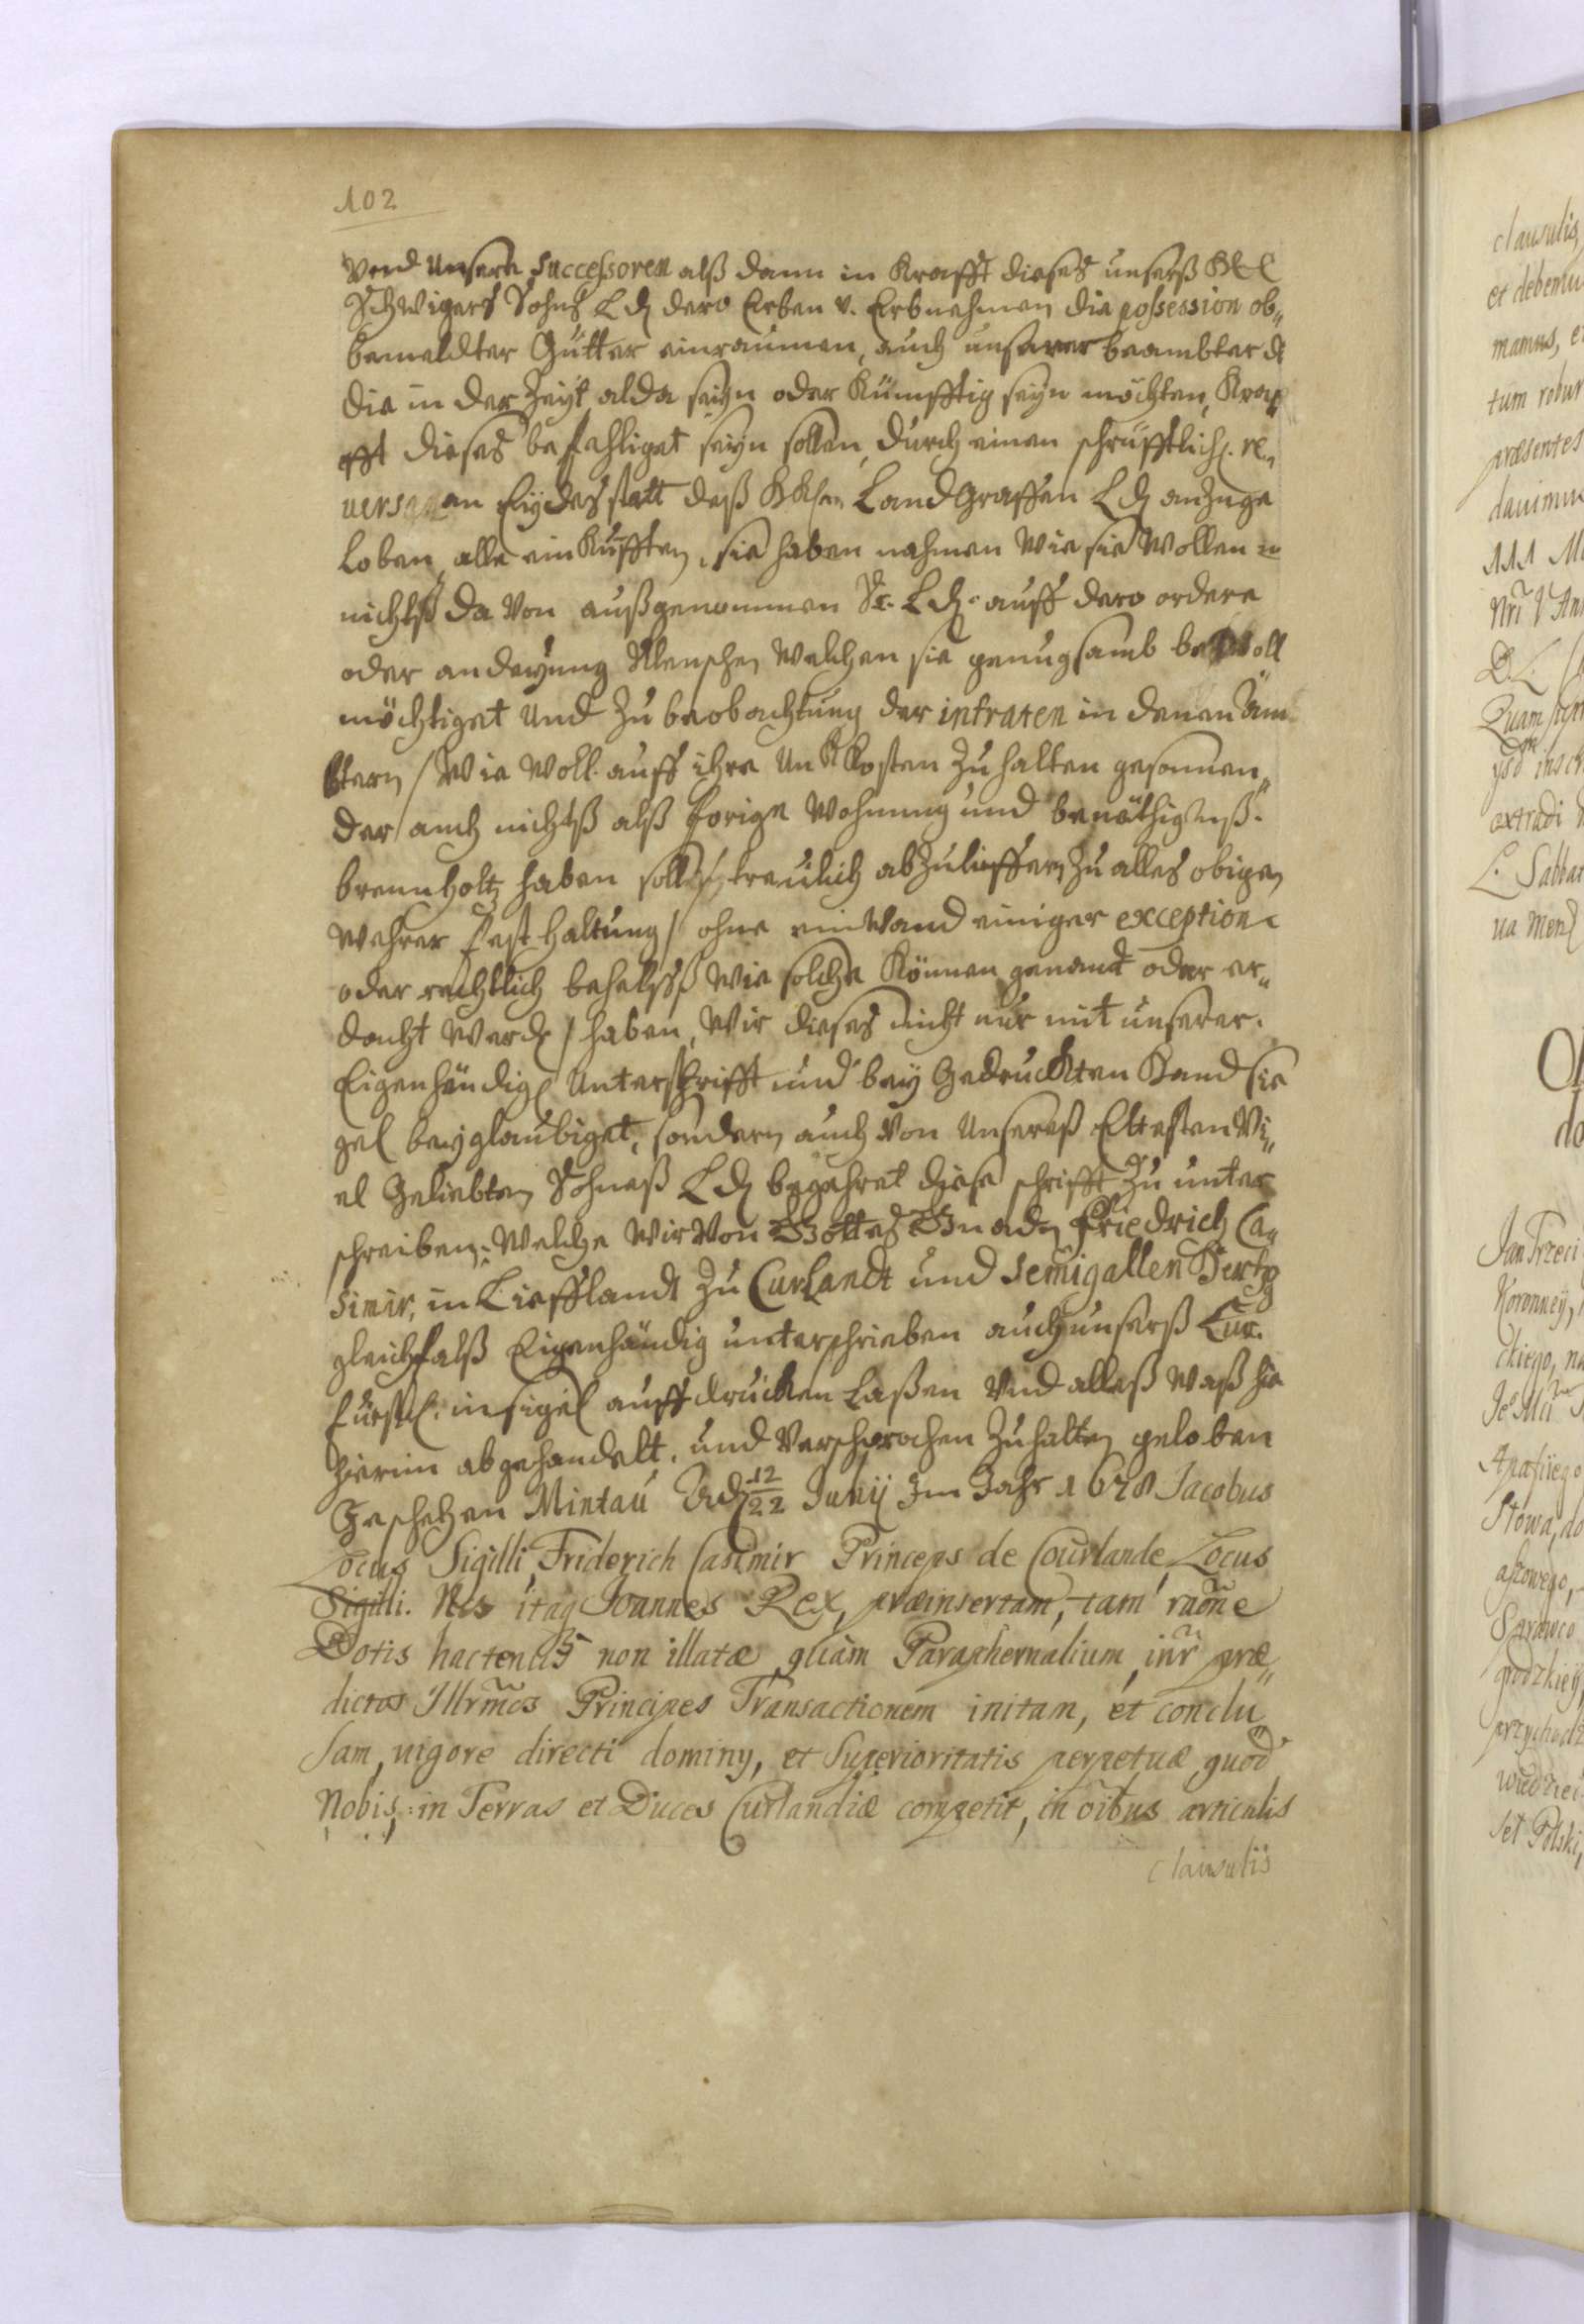 102
Vnd Unsere Successoren alß dann in Krafft dieses unserß
Schwigers Sohnß Ld dero Erben v. Erbnehmen die possession ob„
bemeldter Gütter einraumen, auch unserer beambter d
die in der Zeyt alda seyn oder Künfftig seyn möchten, Kra
fft dieses befehliget seyn sollen, durch einen schrüfftlich. re„
versen an Eydes statt deß Land Graffen Ld anzuge
loben, alle ein Kufften, sie haben nahmen Wie sie Wollen
nichtß da Von außgenommen Sr. Ld. auff dero ordere
oder andeyung Menschen Welchen sie genugsamb be Voll
mächtiget Und Zu beobachtung der intraten in denen äm
btern / Wie Woll auff ihre Un Kosten Zu halten gesonnen„
der auch nichtß alß forige Wohnung und benöthigteß
brennholtz haben soll / treulich abzulieffern Zu alles obigen
Wehrer fest Haltung / ohne einWand einiger exception
oder rechtlich behelffß Wie solche Können genandt oder er„
dacht Werd / haben, Wir dieses nicht nur mit unserer
Eigenhändig Unterschrifft und bey Gedruckten Handsie
gel beyglaubiget, sondern auch Von Unsereß Eltesten Vi„
el Geliebten Sohneß Ld begehret diese schrifft Zu unter
schreiben: Welche Wir Von Gottes Gnaden Friedrich Ca„
simir, in Liefflandt Zu Curlandt und Semigallen Hertzg
gleichfalß Eigenhändig unterschrieben auch unserß Cur.
fürstl. insigel auff drucken Laßen Und alleß Waß hie
hierin abgehandelt, und Versprochen Zuhalten geloben
Geschehen Mintau d 12/22 Junij Im Jahr 1678 Jacobus
Locus Sigilli, Friderich Casimir Princeps de Courlande, Locus
Sigilli. Nos itaq Joannes Rex, præinsertam, tam raõne
Dotis hactenus non illatæ, quàm Paraphernalium, intr præ„
dictos Illrm̃os Principes Transactionem initam, et conclu„
sam, vigore directi dominy, et Superioritatis perpetuæ, quod
Nobis, in Terras et Duces Curlandiæ competit, in oĩbus articulis
clausulis
clausulis,
mamus, e
tum robur
præsentes
L. Sabbat
Jan Trzeci
Koronnÿ,